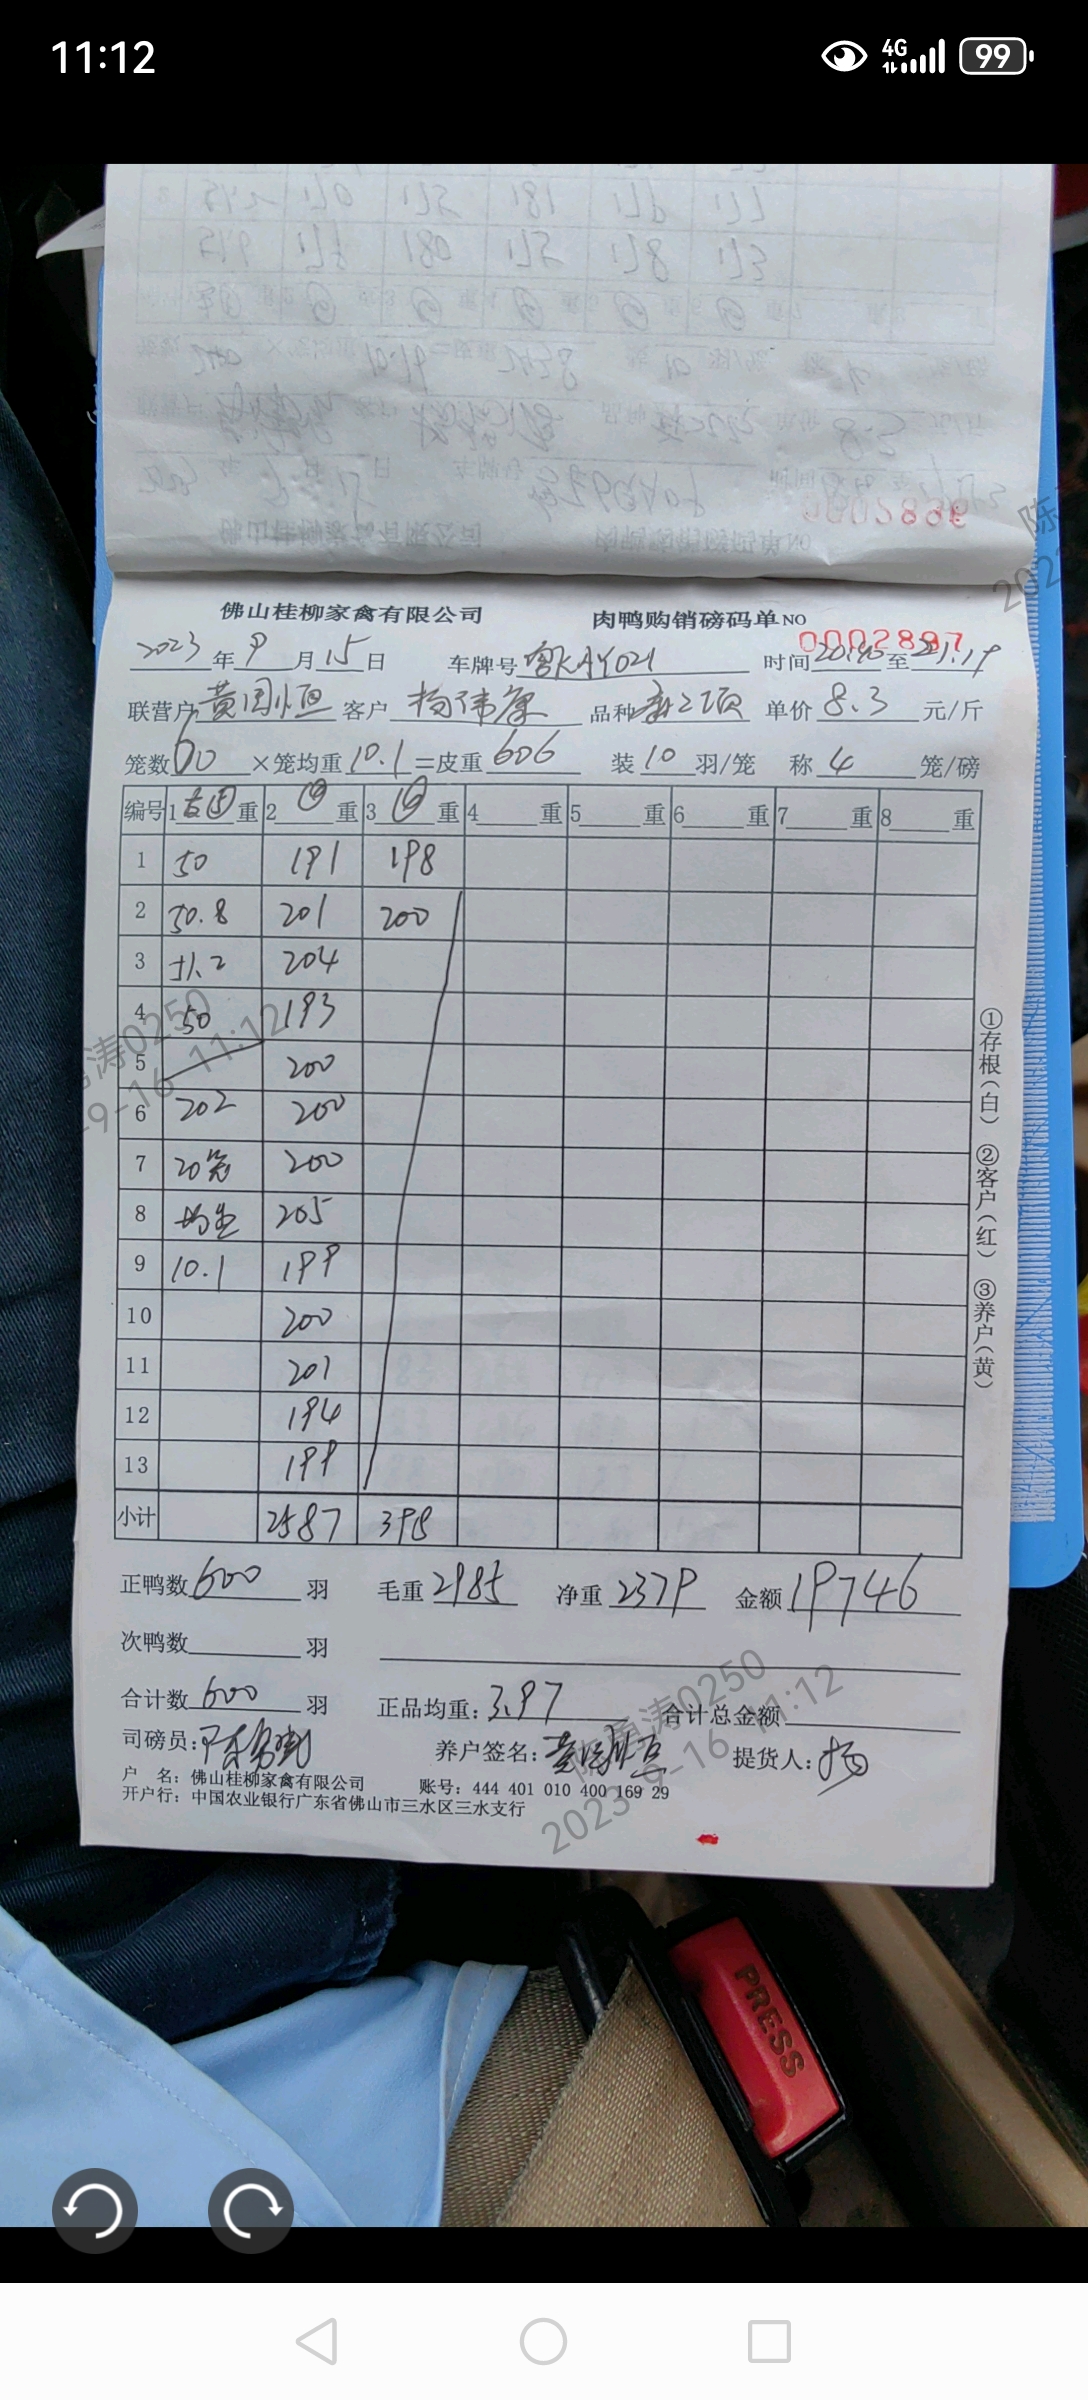 11:12
4G 99
佛山桂柳家禽有限公司 肉鸭购销磅码单 NO 0002897
2023年9月15日 车牌号粤KAY021 时间20:40至21:19
联营户黄国恒 客户杨伟康 品种 单价8.3元/斤
笼数60×笼均重10.1=皮重606 装10羽/笼 称4笼/磅
编号 1 重 2 重 3 重 4 重 5 重 6 重 7 重 8 重
1 50 191 198
2 50.8 201 200
3 51.2 204
4 50 193
5 200
6 202 200
7 20笼 200
8 均重 205
9 10.1 199
10 200
11 201
12 194
13 199
小计 2587 398
正鸭数600羽 毛重2985 净重2379 金额19746
次鸭数 羽
合计数600羽 正品均重:3.97 合计总金额
司磅员: 养户签名:黄国恒 提货人:杨
户 名:佛山桂柳家禽有限公司 账号:444 401 010 400 169 29
开户行:中国农业银行广东省佛山市三水区三水支行
①存根(白) ②客户(红) ③养户(黄)
涛0250
9-16 11:12
陈勇涛0250
2023-9-16 11:12
陈
202
PRESS